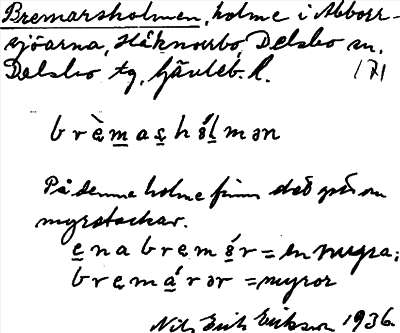 Bremarsholmen, holme i Abborr-
sjöarna, Håknorbo, Delsbo sn.
Delsbo tg, Gävleb. l. 171
brèmas̱hǻlmən
På denna holme finns det gott om
myrstackar.
e̱na bremǻ̱r = en myra;
bremá̱rər = myror
Nils Erik Eriksson 1936.